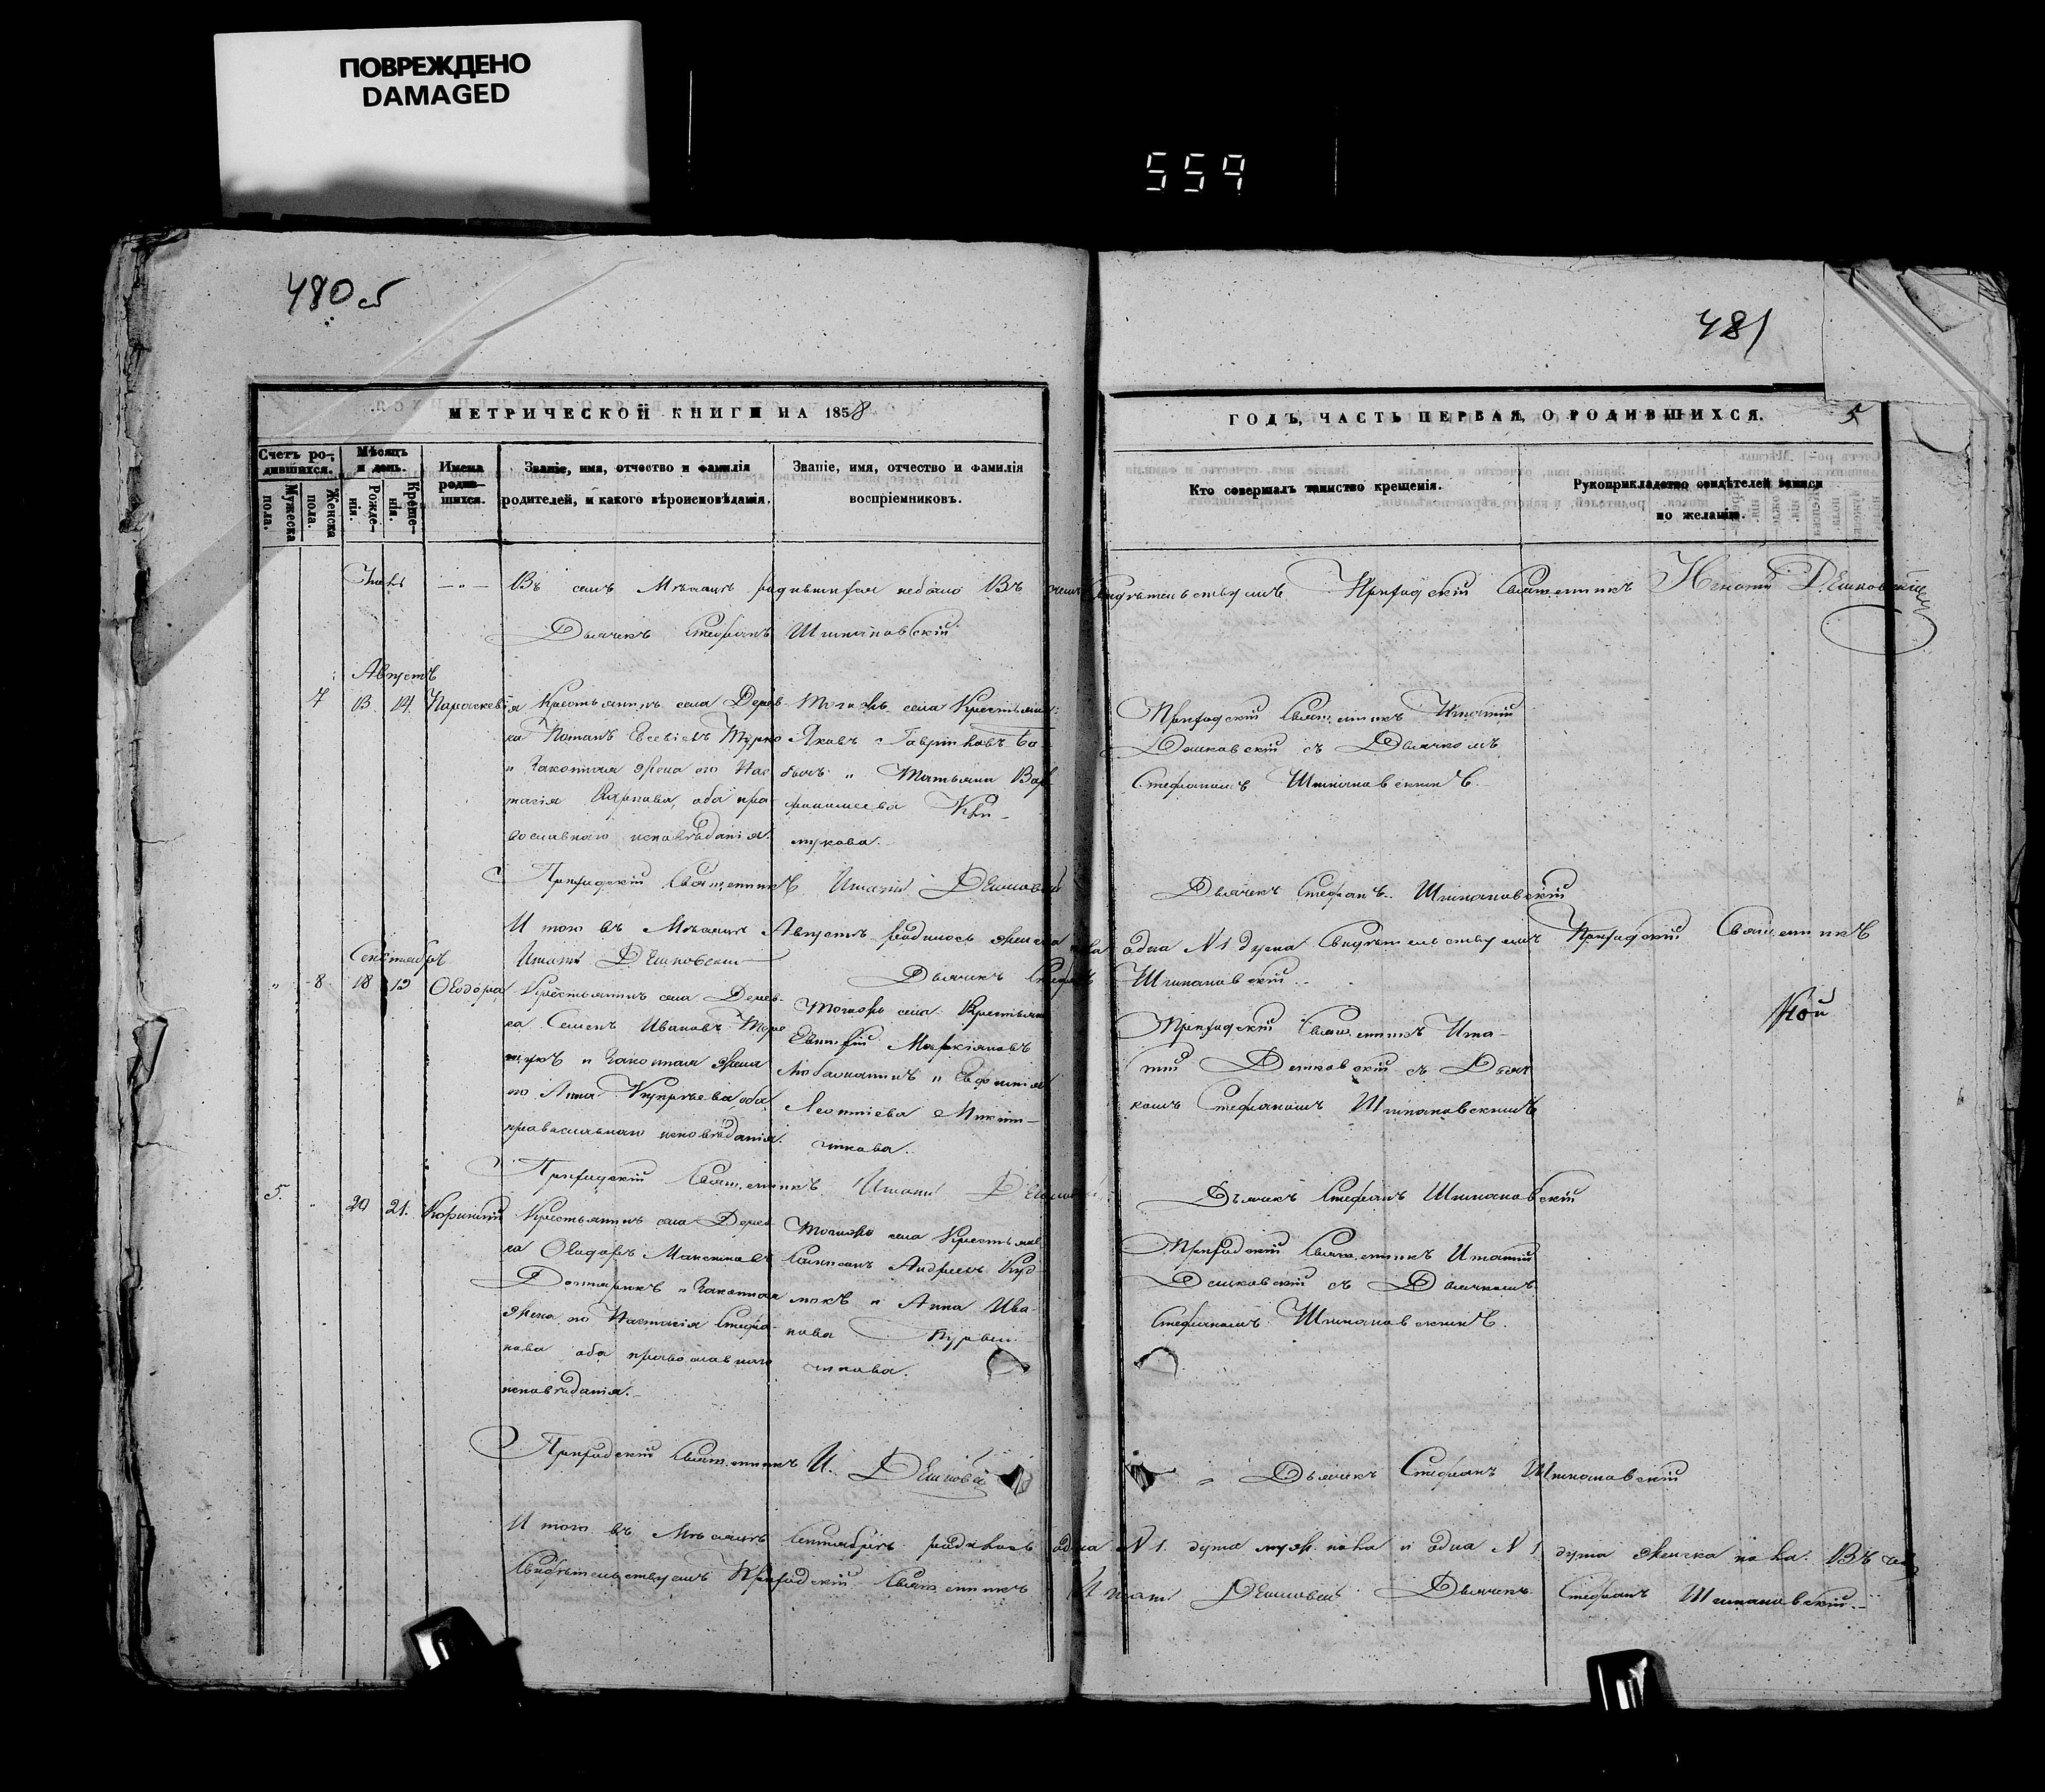 ПОВРЕЖДЕНО
DAMAGED
559
480 об
481
МЕТРИЧЕСКОЙ КНИГИ НА 1858
ГОДЪ, ЧАСТЬ ПЕРВАЯ, О РОДИВШИХСЯ.
5
Счетъ родившихся.
Мужеска пола.
Женска пола.
Мѣсяцъ и день.
Рожденія.
Крещенія.
Имена родившихся.
Званіе, имя, отчество и фамилія родителей, и какого вѣроисповѣданія.
Званіе, имя, отчество и фамилія воспріемниковъ.
Кто совершалъ таинство крещенія.
Рукоприкладство свидѣтелей записи по желанію.
Іюль — „ — Въ семъ Мѣсяцѣ родившихся небыло Въ чемъ Свидѣтельствуемъ Приходскій Священникъ Игнатій Дешковскій
Дьячекъ Стефанъ Шпиановскій
Августъ
7 13. 14. Параскевія
Крестьянинъ села Дерев-
ка Романъ Евсевіевъ Турко
и законная жена его Нас-
тасія Карпова, оба пра-
вославнаго исповѣданія.
Тогожъ села Крестьянин:
Яковъ Гавриловъ Ба-
Татьяна Вар-
фоломеева
Приходскій Священникъ Игнатій
Дешковскій съ Дьячкомъ
Стефаномъ Шпиановскимъ.
Приходскій Священникъ Игнатій Дешковскій
Дьячекъ Стефанъ Шпиановскій
И того въ Мѣсяцѣ Августѣ родилось женска пола одна N 1 душа Свидѣтельствуемъ Приходскій Священникъ
Игнатій Дешковскій Дьячекъ Стефанъ Шпиановскій.
Сентябрь
„ 8. 18 19 Ѳеодора
Крестьянинъ села Дерев-
ка Семенъ Ивановъ
и законная жена
его Анна оба
православнаго исповѣданія.
Тогожъ села Крестьян
Евтихій Маркіановъ
и Евфимія
Леонтіева
Приходскій Священникъ Игна-
тій Дешковскій съ Дьяч-
комъ Стефаномъ Шпиановскимъ
Приходскій Священникъ Игнатій Дешковскій
Дьячекъ Стефанъ Шпиановскій
5. „ 20 21. Корнилій
Крестьянинъ села Дерев-
ка Ѳеодоръ Максимовъ
и законная
жена его Настасія Стефа-
нова оба православнаго
исповѣданія.
Тогожъ села Крестьян
Андреевъ
и Анна Ива-
нова
Приходскій Священникъ Игнатій
Дешковскій съ Дьячкомъ
Стефаномъ Шпиановскимъ.
Приходскій Священникъ И. Дешковскій
Дьячекъ Стефанъ Шпиановскій
И того въ Мѣсяцѣ Сентябрѣ родилось одна N 1. душа муж. пола и одна N 1 душа женска пола. Въ чемъ
Свидѣтельствуемъ Приходскій Священникъ Игнатій Дешковскій Дьячекъ Стефанъ Шпиановскій.